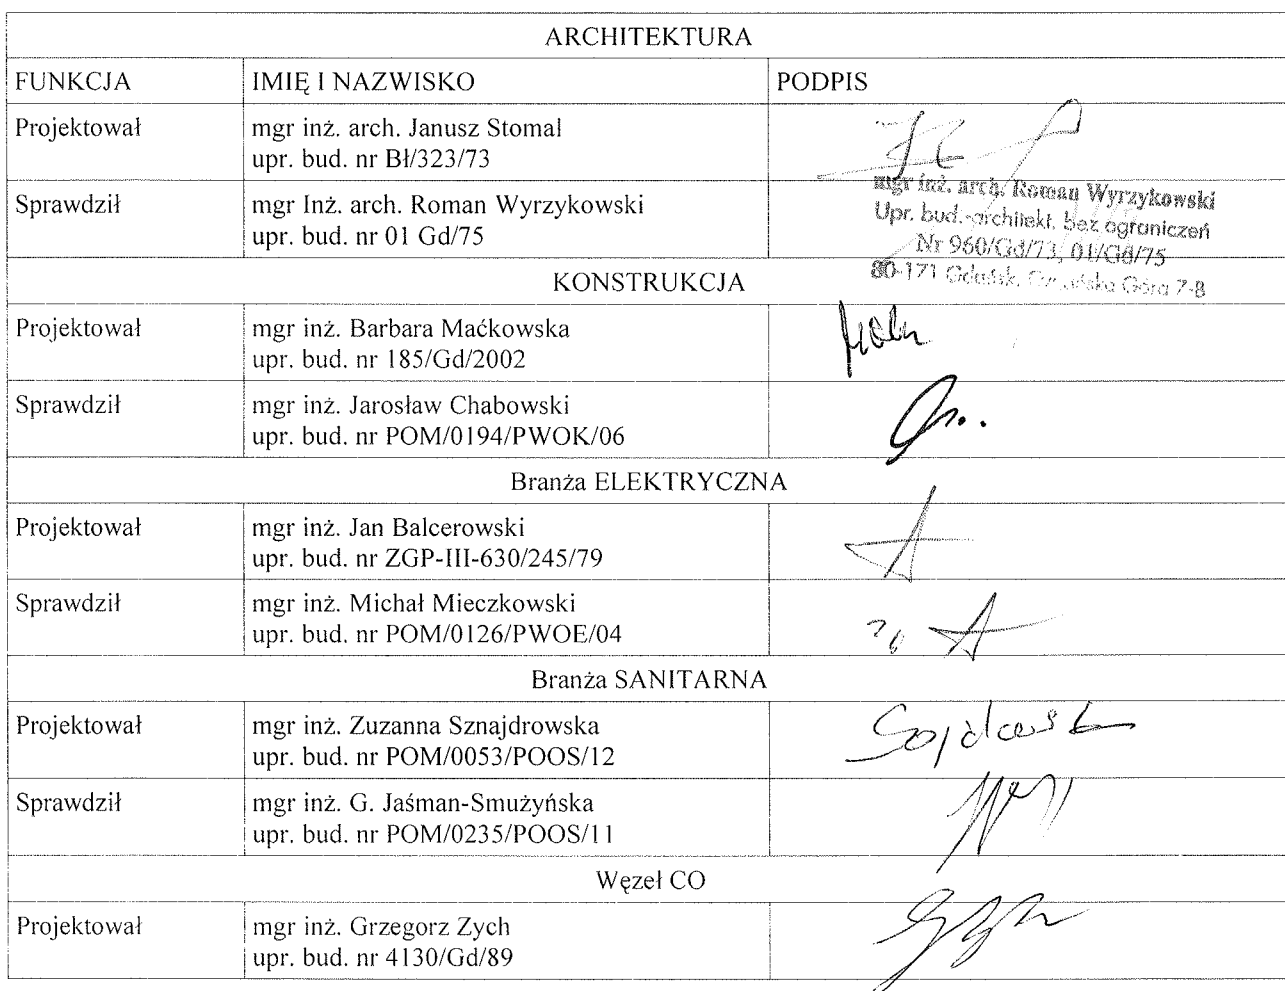 ARCHITEKTURA
FUNKCJA IMIĘ I NAZWISKO PODPIS
Projektował mgr inż. arch. Janusz Stomal
upr. bud. nr Bł/323/73
mgr inż. arch. Roman Wyrzykowski
Upr. bud.-architekt. bez ograniczeń
Nr 960/Gd/73, 01/Gd/75
80-171 Gdańsk, Góra 7-8
Sprawdził mgr Inż. arch. Roman Wyrzykowski
upr. bud. nr 01 Gd/75
KONSTRUKCJA
Projektował mgr inż. Barbara Maćkowska
upr. bud. nr 185/Gd/2002
Sprawdził mgr inż. Jarosław Chabowski
upr. bud. nr POM/0194/PWOK/06
Branża ELEKTRYCZNA
Projektował mgr inż. Jan Balcerowski
upr. bud. nr ZGP-III-630/245/79
Sprawdził mgr inż. Michał Mieczkowski
upr. bud. nr POM/0126/PWOE/04
Branża SANITARNA
Projektował mgr inż. Zuzanna Sznajdrowska
upr. bud. nr POM/0053/POOS/12
Sprawdził mgr inż. G. Jaśman-Smużyńska
upr. bud. nr POM/0235/POOS/11
Węzeł CO
Projektował mgr inż. Grzegorz Zych
upr. bud. nr 4130/Gd/89